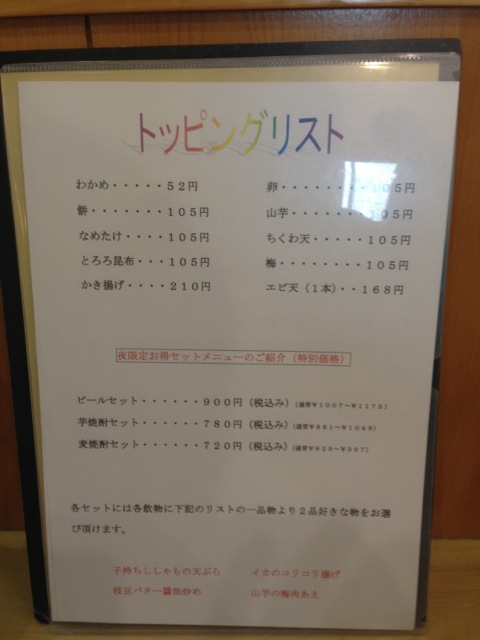 トッピングリスト
わかめ・・・・・５２円
餅・・・・・・・１０５円
なめたけ・・・・１０５円
とろろ昆布・・・１０５円
かき揚げ・・・・２１０円
卵・・・・・・・・１０５円
山芋・・・・・・・１０５円
ちくわ天・・・・・１０５円
梅・・・・・・・・１０５円
エビ天（１本）・・１６８円
夜限定お得セットメニューのご紹介（特別価格）
ビールセット・・・・・・９００円（税込み）（通常￥１００７～￥１１７５）
芋焼酎セット・・・・・・７８０円（税込み）（通常￥８８１～￥１０４９）
麦焼酎セット・・・・・・７２０円（税込み）（通常￥８２９～￥９９７）
各セットには各飲物に下記のリストの一品物より２品好きな物をお選
び頂けます。
子持ちししゃもの天ぷら　　イカのコリコリ揚げ
枝豆バター醤油炒め　　山芋の梅肉あえ